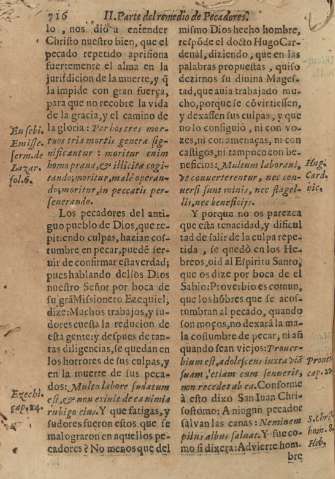 716 II. Parte del remedio de Pecadores.
lo, nos diò a entender
Christo nuestro bien, que el
pecado repetido aprisiona
fuertemente el alma en la
jurisdicion de la muerte, y q̃
la impide con gran fuerça,
para que no recobre la vida
de la gracia, y el camino de
la gloria: Per hos tres mor-
tuos tria mortis genera sig-
nificantur: moritur enim
homo praua, & illicita cogi-
tando; moritur, male operan-
do; moritur, in peccatis per-
seuerando.
Euseb.
Emisse.
serm. de
Lazar.
fol. 6.
Los pecadores del anti-
guo pueblo de Dios, que re-
pitiendo culpas, hazian cos-
tumbre en pecar, puedē ser-
uir de confirmar esta verdad;
pues hablando dellos Dios
nuestro Señor por boca de
su grā Missionero Ezequiel,
dize: Muchos trabajos, y su-
dores cuesta la reducion de
esta gente: y despues de tan-
tas diligencias, se quedan en
los horrores de sus culpas, y
en la muerte de sus peca-
dos: Multo labore sudatum
est, & non exiuit de ea nimia
rubigo eius. Y que fatigas, y
sudores fueron estos que se
malograron en aquellos pe-
cadores? No menos que del
Ezech.
cap. 24.
mismo Dios hecho hombre,
respōde el docto Hugo Car-
denal, diziendo, que en las
palabras propuestas, quiso
dezirnos su diuina Mages-
tad, que auia trabajado mu-
cho, porque se cōvirtiessen,
y dexassen sus culpas, y que
no lo consiguió, ni con vo-
zes, ni con amenaças, ni con
castigos, ni tampoco con be-
neficios: Multum laboraui,
vt conuerterentur, nec con-
uersi sunt minis, nec flagel-
lis, nec beneficijs.
Hug.
Card.
vic.
Y porque no os parezca
que esta tenacidad, y dificul
tad de salir de la culpa repe-
tida, se quedò en los He-
breos, oid al Espiritu Santo,
que os dize por boca de el
Sabio: Proverbio es comun,
que los hōbres que se acos-
tumbran al pecado, quando
son moços, no dexarà la ma-
la costumbre de pecar, ni aũ
quando sean viejos: Prouer-
bium est, adolescens iuxta viā
suam, etiam cum senuerit,
non recedet ab ea. Conforme
à esto dixo San Iuan Chri-
sostomo: A ningun pecador
salvan las canas: Neminem
pilus albus saluat. Y fue co-
mo si dixera: Advierte hom-
bre
Prouer.
cap. 22.
S. Chris.
hom. 8.
Heb.